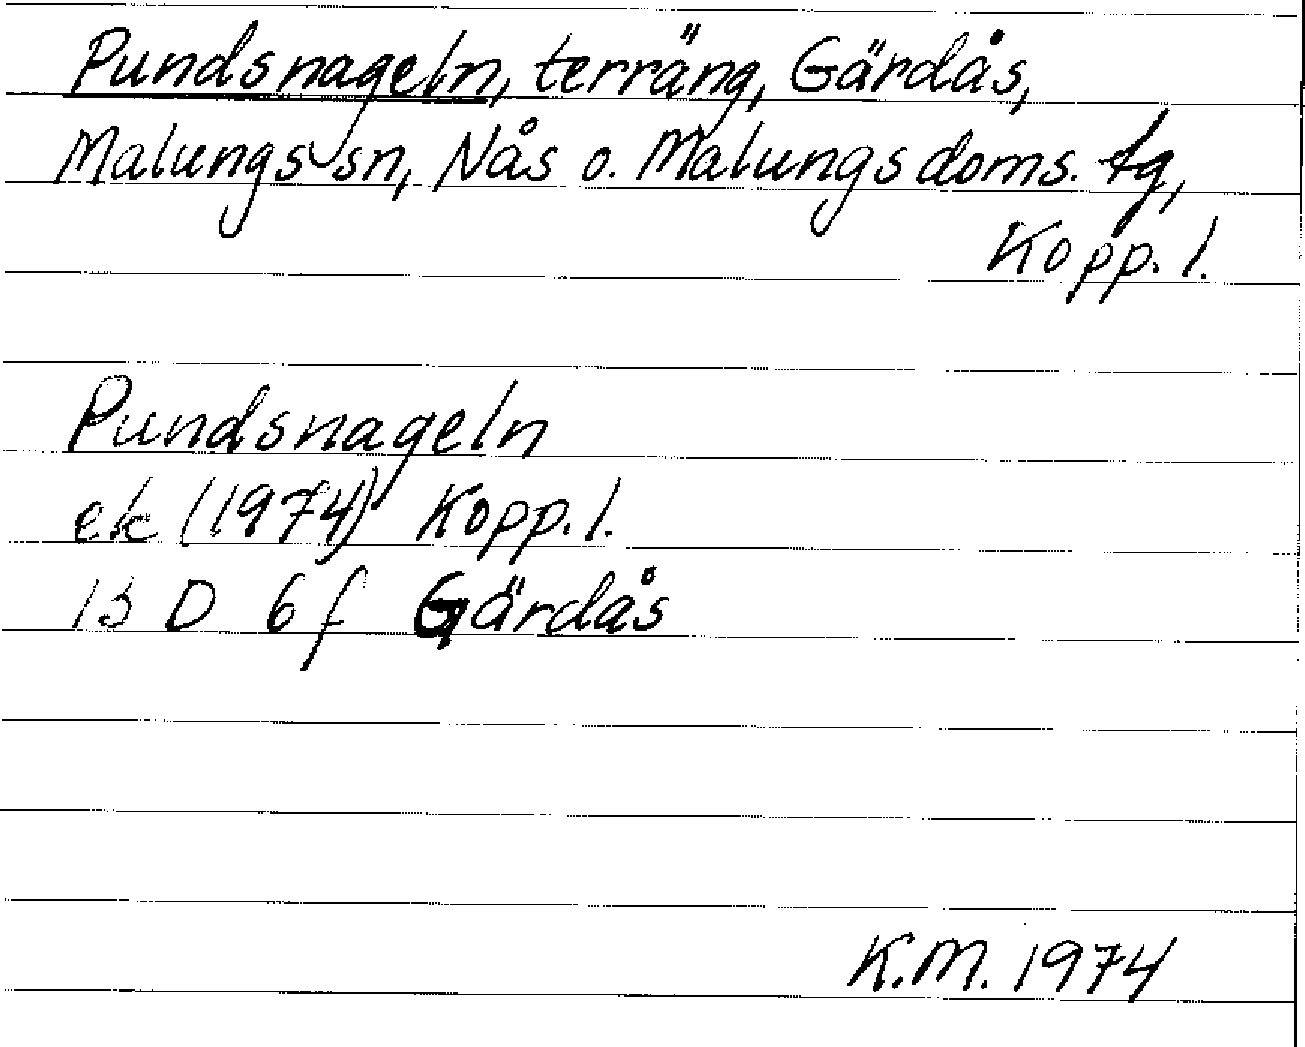 Pundsnageln, terräng, Gärdås,
Malungs sn, Nås o. Malungs doms. tg,
Kopp. l.
Pundsnageln
ek (1974) Kopp. l.
13 D 6 f Gärdås
K.M. 1974